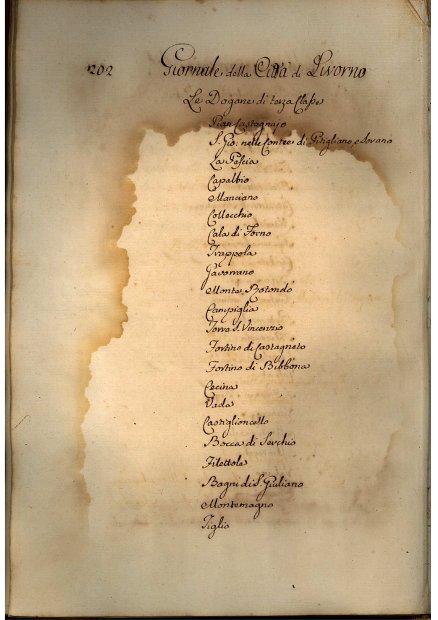 202 Giornale della Città di Livorno
Le Dogane di terza Classe
Pian Castagnajo
S. Gio: nelle Contee di Pitigliano e Sorano
La Pescia
Capalbio
Manciano
Collecchio
Cala di Forno
Trappola
Gavorrano
Monte Rotondo
Campiglia
Torre S. Vincenzio
Fortino di Castagneto
Fortino di Bibbona
Cecina
Vada
Castiglioncello
Bocca di Serchio
Filettole
Bagni di S. Giuliano
Montemagno
Tiglio